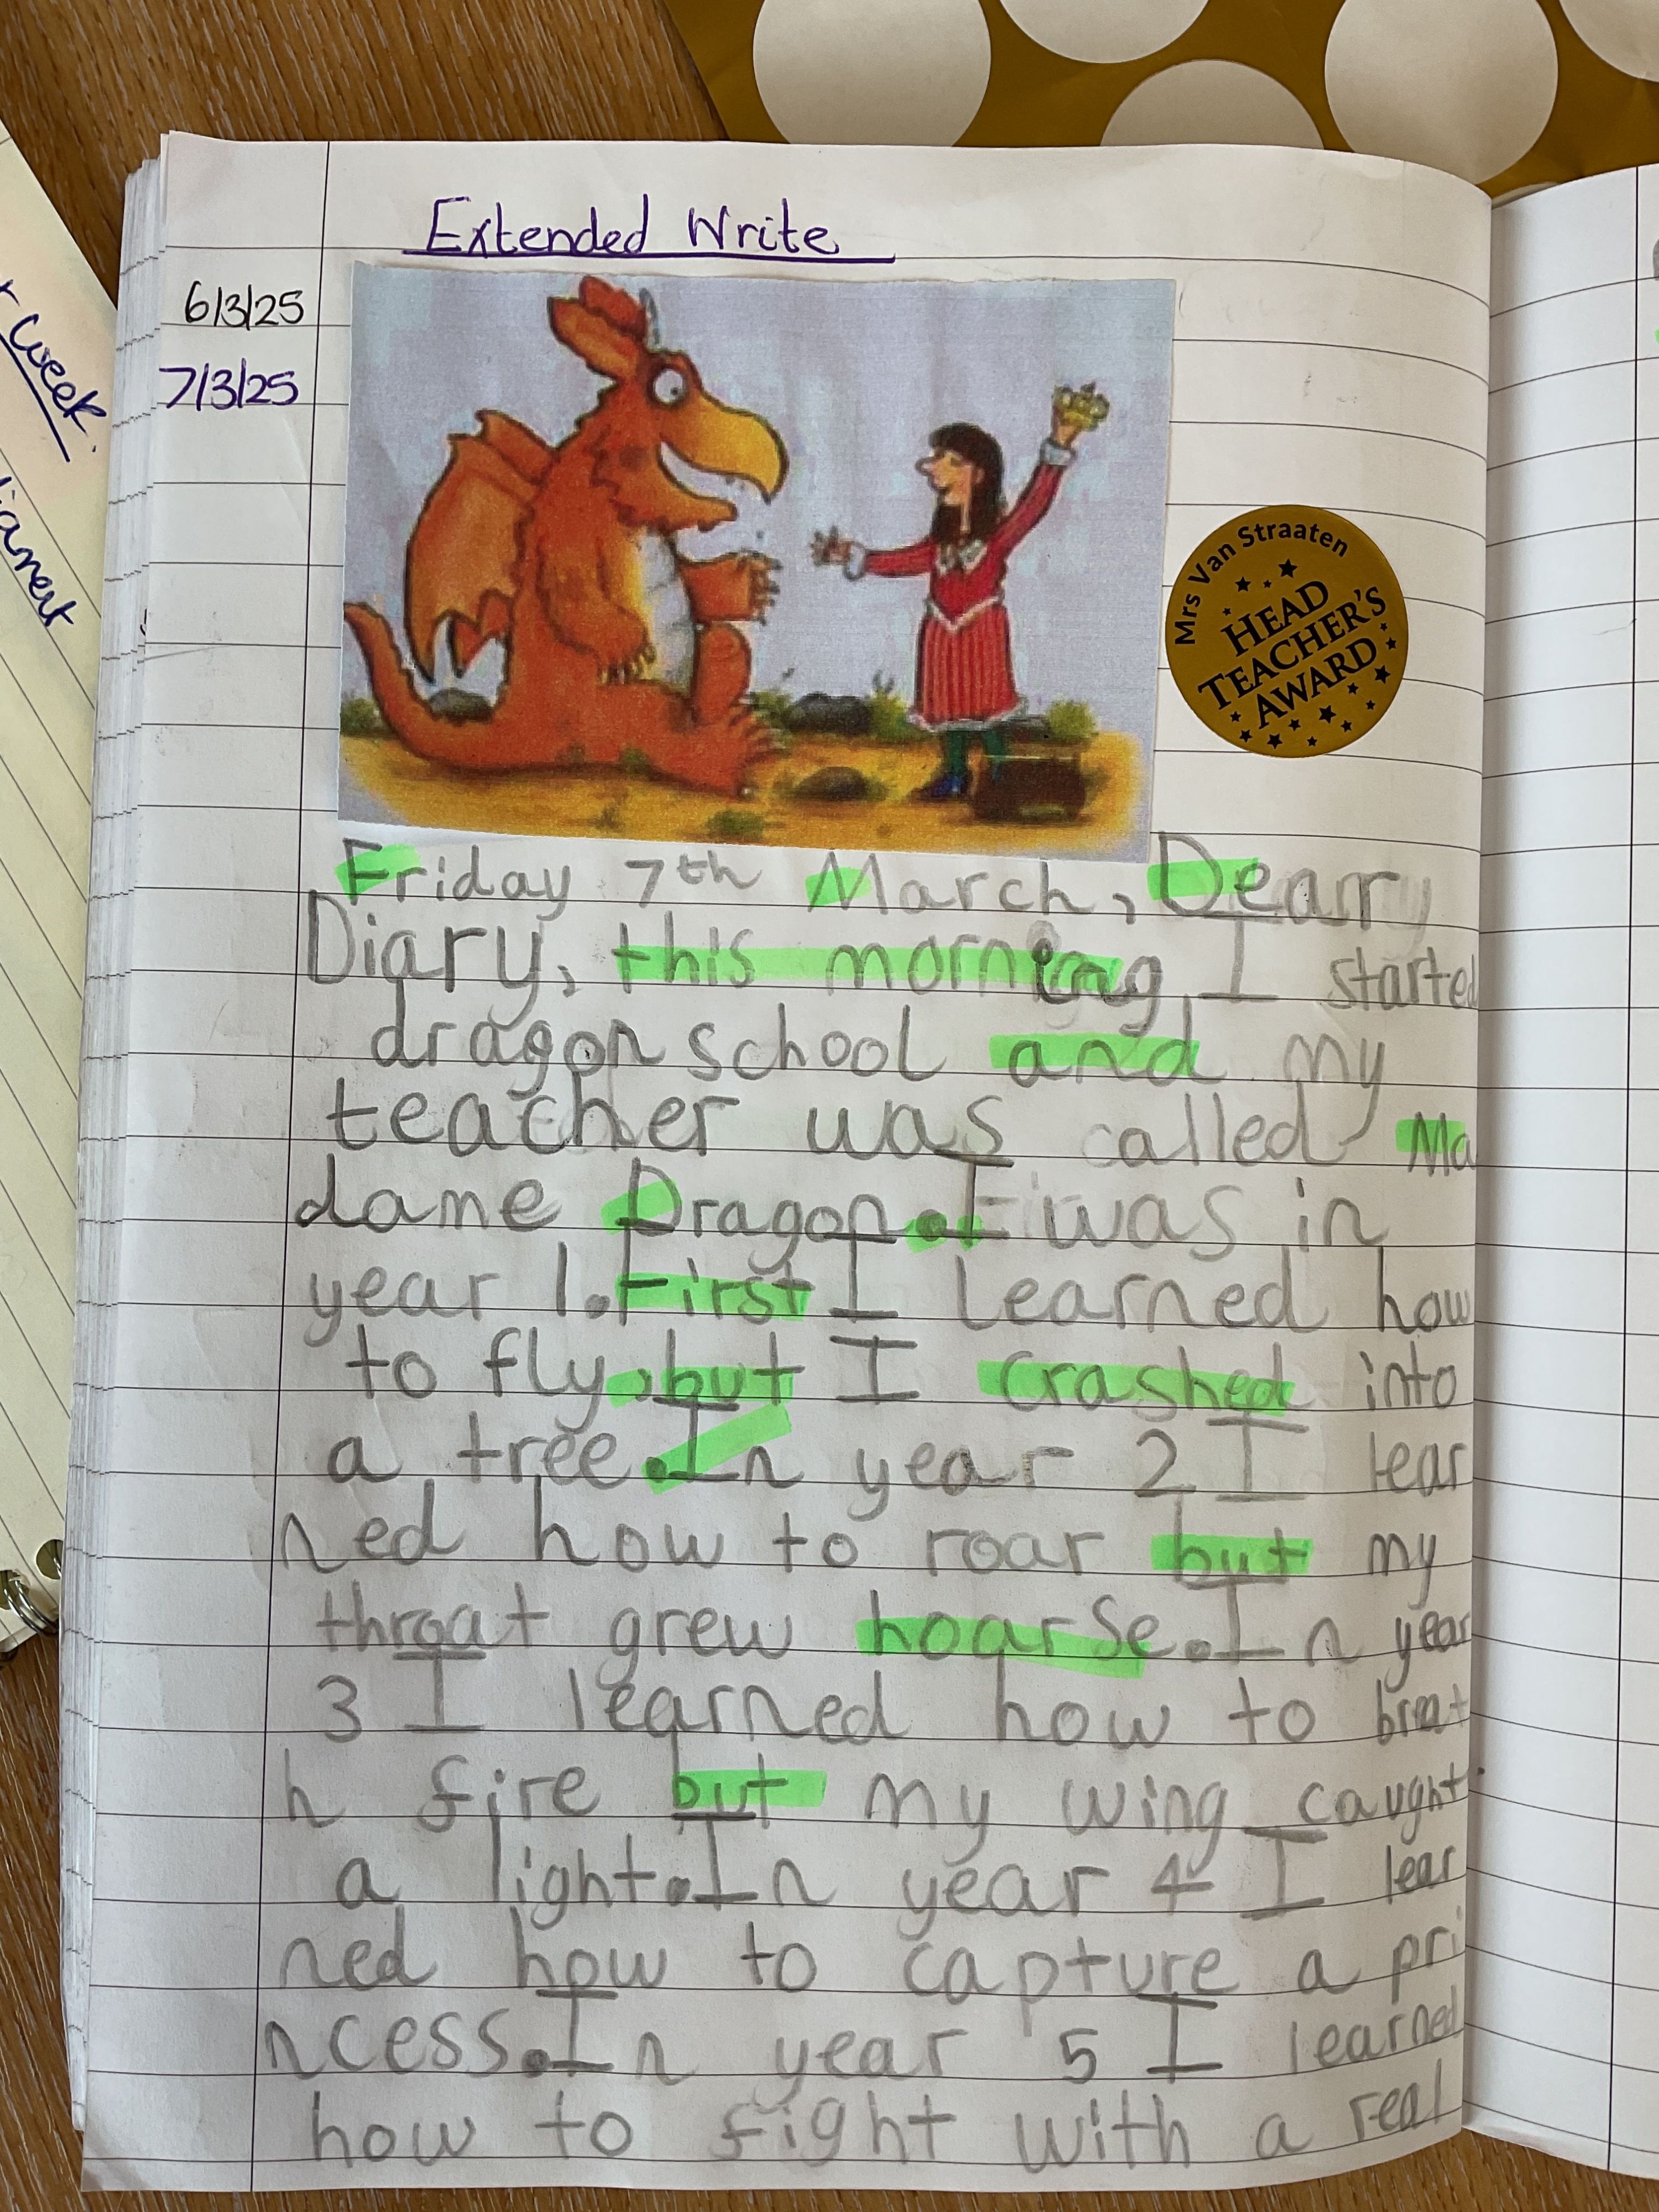 Extended Write
6/3/25
7/3/25
Mrs Van Straaten
HEAD
TEACHER'S
AWARD
Friday 7th March, Dear
Diary, this morning I started
dragon school and my
teacher was called Ma
dame Dragon. I was in
year 1. First I learned how
to fly, but I crashed into
a tree. In year 2 I lear
ned how to roar but my
throat grew hoarse. In year
3 I learned how to breat
h fire but my wing caught
a light. In year 4 I lear
ned how to capture a pri
ncess. In year 5 I learned
how to fight with a real
week.